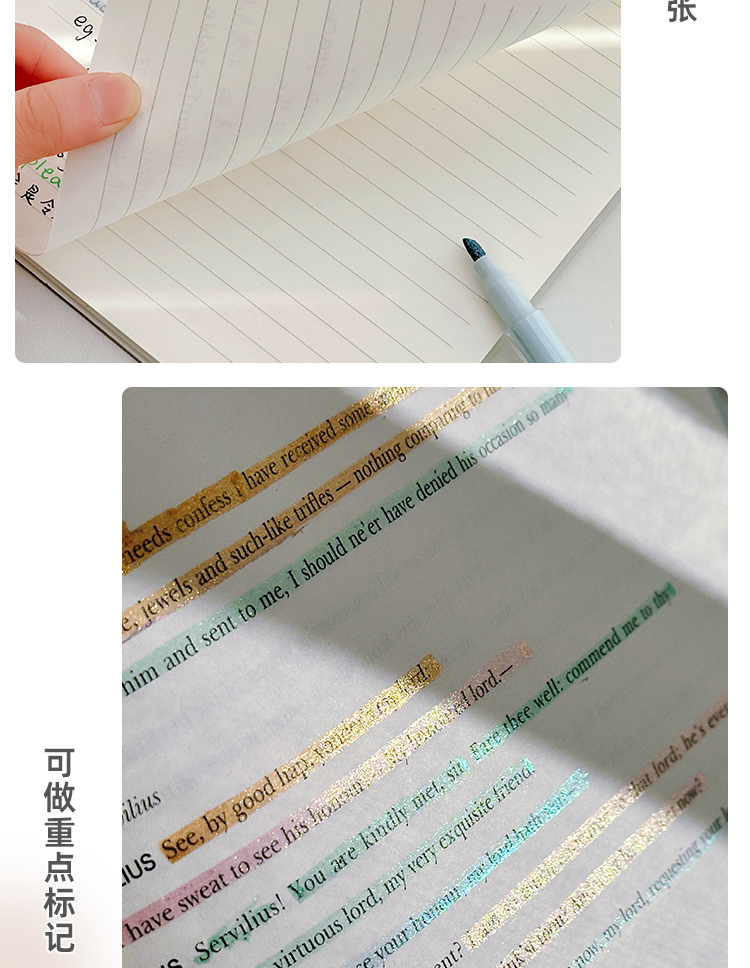 张
eg.
plea
是令
可做重点标记
needs confess I have received some
e, jewels and such-like trifles — nothing comparing to
him and sent to me, I should ne'er have denied his occasion so many
See, by good hap, yonder's my lord;
have sweat to see his honour. My honoured lord.—
Servilius! You are kindly met, sir. Fare thee well: commend me to thy
virtuous lord, my very exquisite friend.
your honour, my lord hath sent
that lord; he's ever
now?
now, my lord, requesting your